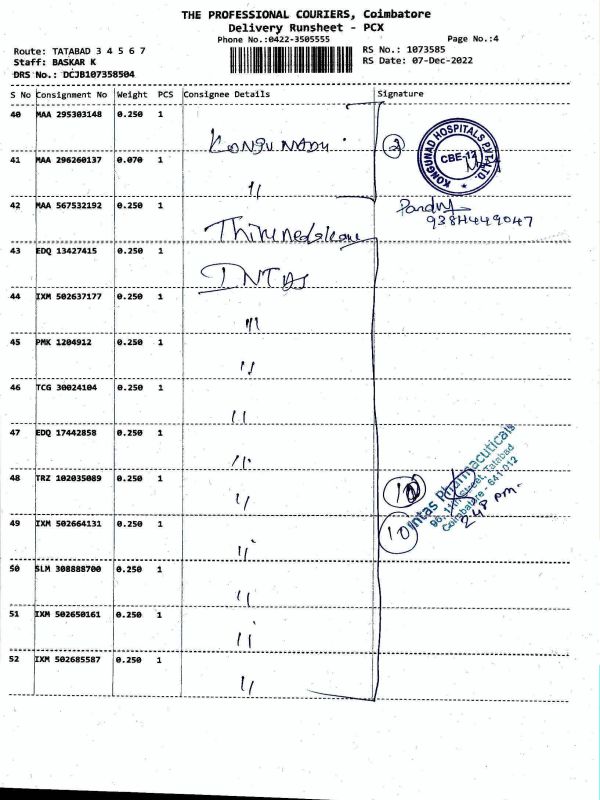 THE PROFESSIONAL COURIERS, Coimbatore
Delivery Runsheet - PCX
Phone No.:0422-3505555
Page No.:4
Route: TATABAD 3 4 5 6 7
RS No.: 1073585
Staff: BASKAR K
RS Date: 07-Dec-2022
DRS No.: DCJB107358504
S No Consignment No Weight PCS Consignee Details Signature
40 MAA 295303148 0.250 1
KONGU NADU
2
KONGUNAD HOSPITALS PVT. LTD.
CBE-12
41 MAA 296260137 0.070 1
"
42 MAA 567532192 0.250 1
9384449047
43 EDQ 13427415 0.250 1
INTAS
44 IXM 502637177 0.250 1
"
45 PMK 1204912 0.250 1
"
46 TCG 30024104 0.250 1
"
47 EDQ 17442858 0.250 1
"
48 TRZ 102035089 0.250 1
"
10
Intas Pharmaceuticals
96, 11th Street, Tatabad
Coimbatore - 641 012
49 IXM 502664131 0.250 1
"
10
50 SLM 308888700 0.250 1
"
51 IXM 502650161 0.250 1
"
52 IXM 502685587 0.250 1
"